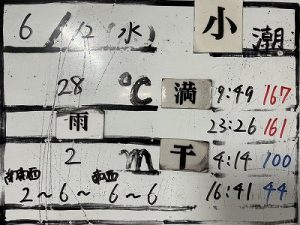 6/12(水) 小潮
28℃ 満 9:49 167
雨 23:26 161
2m 干 4:14 100
南南西 南西 16:41 44
2〜6〜6〜6